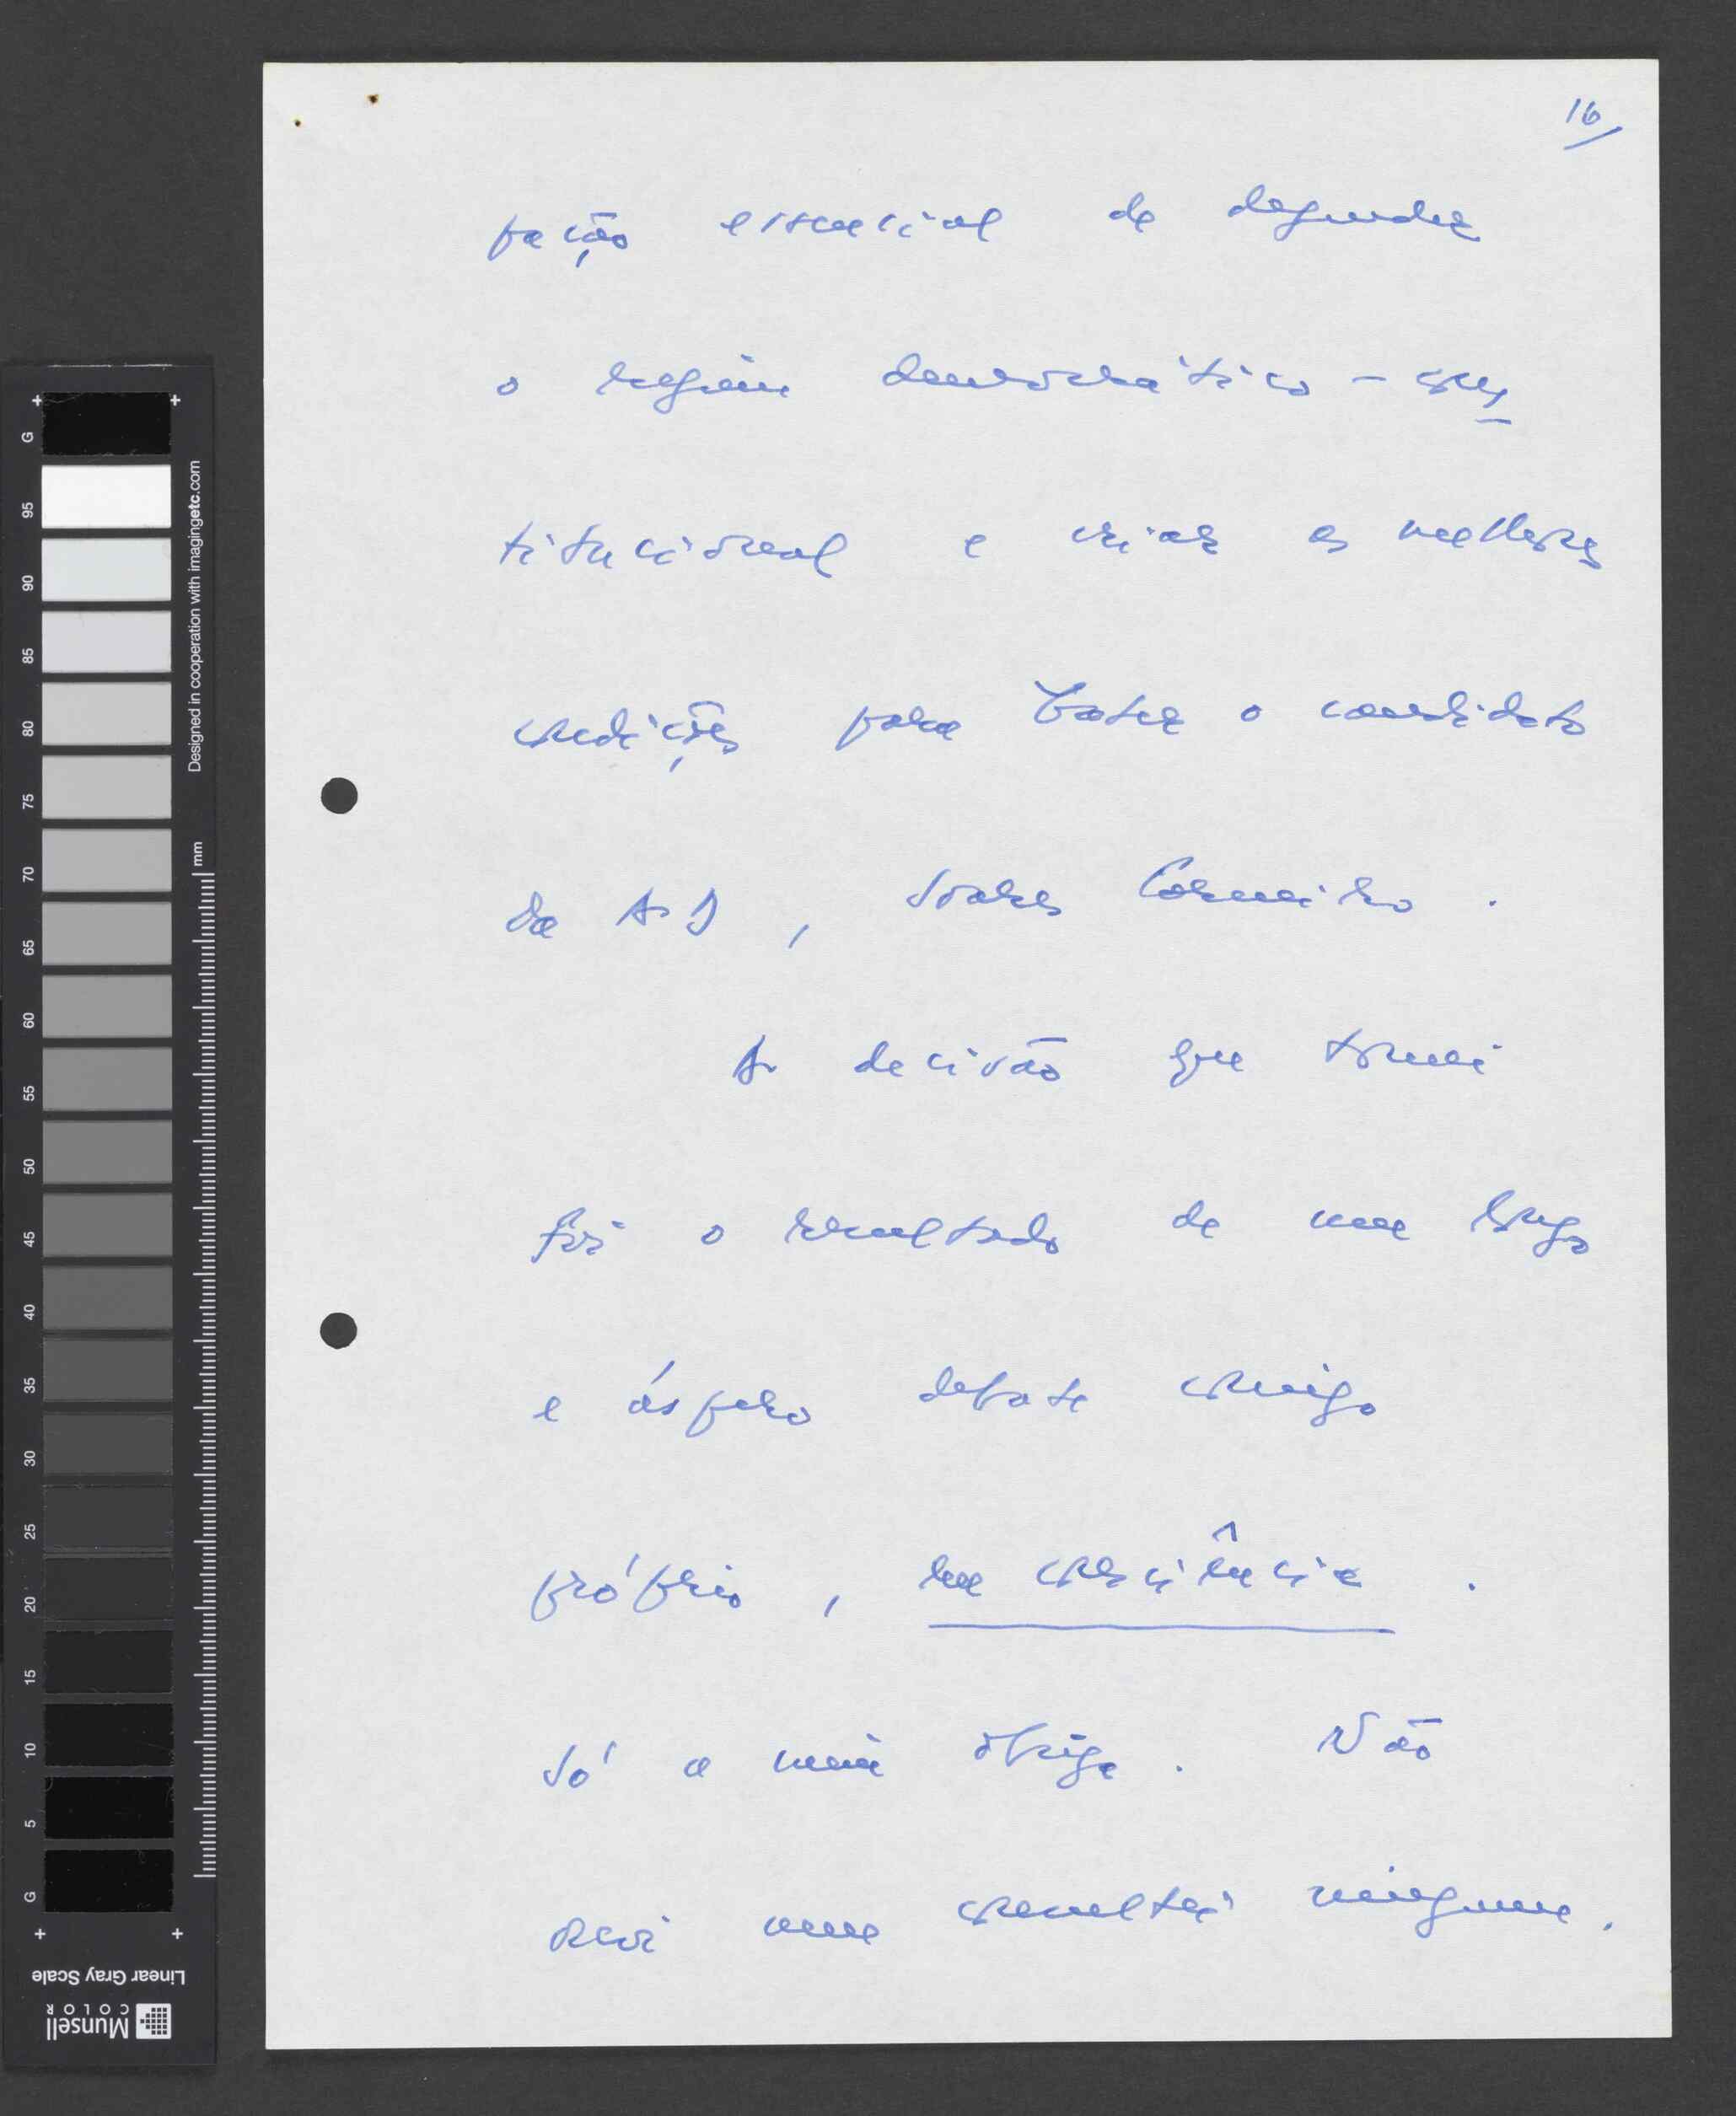 16
pação essencial de defender
o regime democrático-cons
titucional e criar as melhores
condições para bater o candidato
da AD, Soares Carneiro.
A decisão que tomei
foi o resultado de um longo
e áspero debate comigo
próprio, em consciência.
Só a mim obriga. Não
ouvi nem consultei ninguém.
G
95
90
85
80
75
70
65
60
55
50
45
40
35
30
25
20
15
10
5
G
Designed in cooperation with imagingetc.com
mm
Linear Gray Scale
Munsell
COLOR